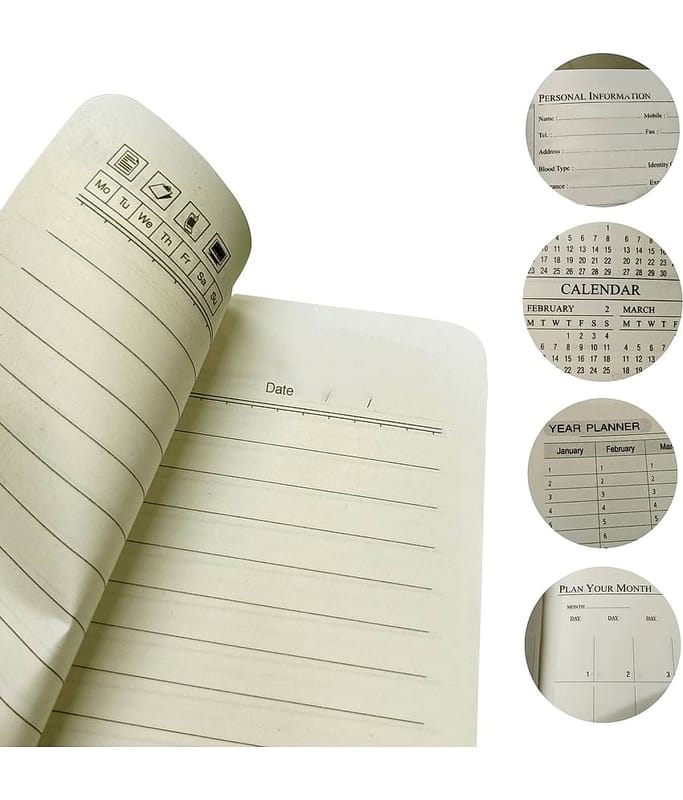 Mo Tu We Th Fr Sa Su
Date / /
PERSONAL INFORMATION
Name : Mobile :
Tel. : Fax :
Address :
Blood Type : Identity
1
4 5 6 7 8 6 7 8
10 11 12 13 14 15 13 14 15 16
17 18 19 20 21 22 20 21 22 23
23 24 25 26 27 28 29 27 28 29 30
CALENDAR
FEBRUARY 2 MARCH
M T W T F S S M T W T F
1 2 3 4
7 8 9 10 11 4 5 6 7
14 15 16 17 18 11 12 13
22 23 24 25 18 19
YEAR PLANNER
January February
1 1 1
2 2 2
3 3 3
4 4 4
5 5 5
6
PLAN YOUR MONTH
MONTH
DAY DAY DAY
1 2 3